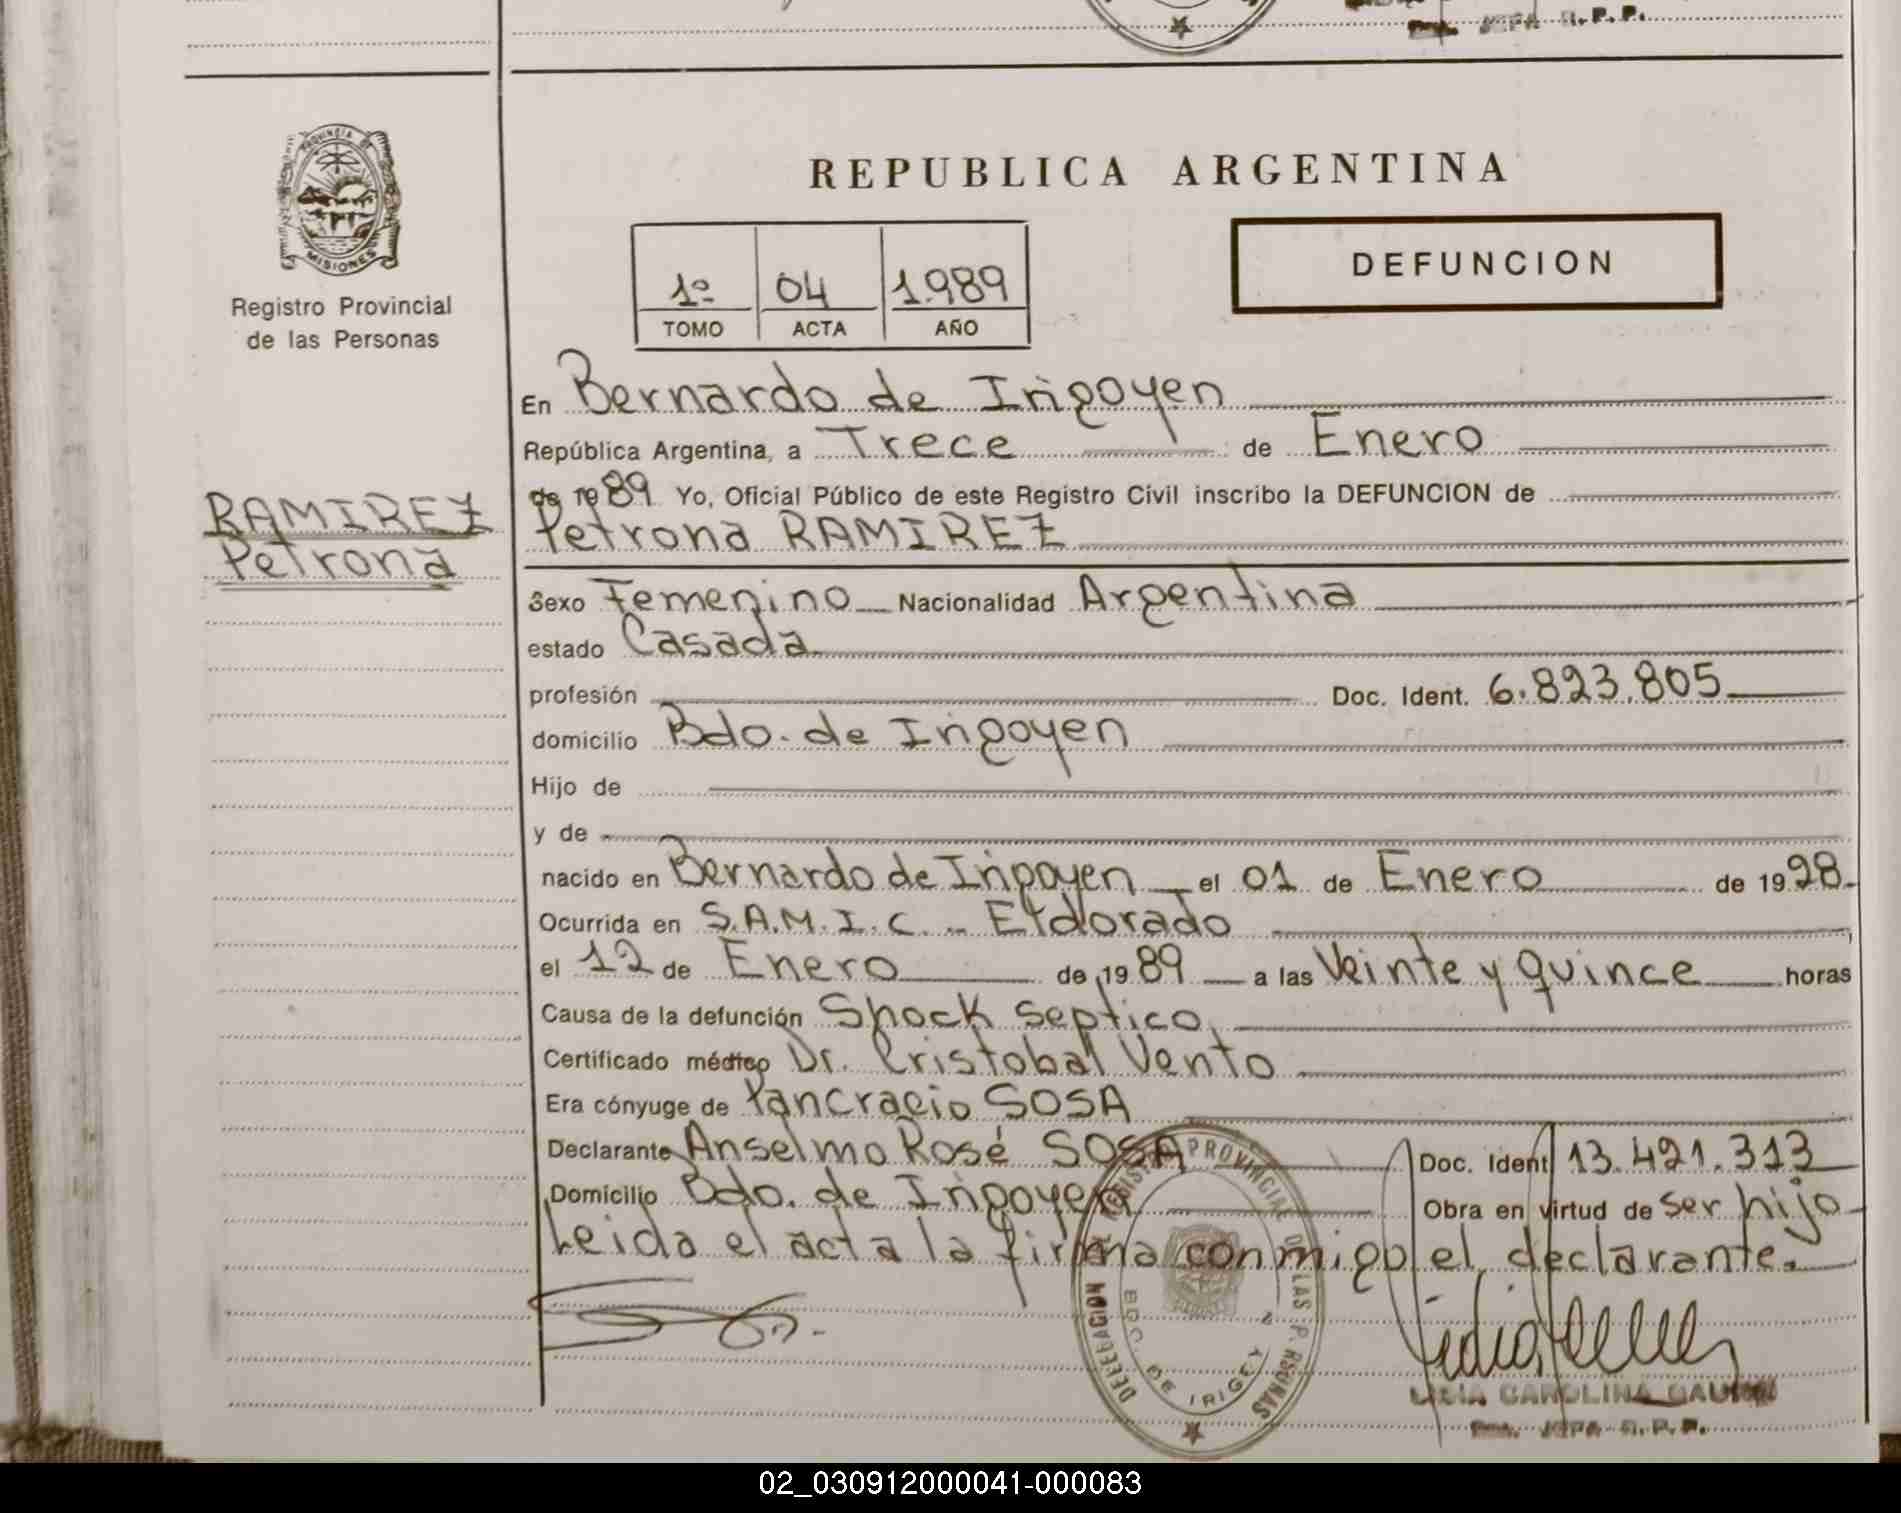 JEFA R.P.P.
PROVINCIA DE
MISIONES
Registro Provincial
de las Personas
REPUBLICA ARGENTINA
DEFUNCION
1º 04 1.989
TOMO ACTA AÑO
En Bernardo de Irigoyen
República Argentina, a Trece de Enero
de 1989 Yo, Oficial Público de este Registro Civil inscribo la DEFUNCION de
RAMIREZ
Petrona
Petrona RAMIREZ
Sexo Femenino Nacionalidad Argentina
estado Casada
profesión Doc. Ident. 6.823.805
domicilio Bdo. de Irigoyen
Hijo de
y de
nacido en Bernardo de Irigoyen el 01 de Enero de 1928
Ocurrida en S.A.M.I.C. - Eldorado
el 12 de Enero de 1989 a las Veinte y quince horas
Causa de la defunción Shock septico,
Certificado médico Dr. Cristobal Vento
Era cónyuge de Pancracio SOSA
Declarante Anselmo Rosé SOSA Doc. Ident 13.421.313
Domicilio Bdo. de Irigoyen Obra en virtud de ser hijo
Leida el acta la firma conmigo el declarante.
DELEGACION REGISTRO PROVINCIAL DE LAS PERSONAS
BDO. DE IRIGOYEN
CAROLINA
JEFA R.P.P.
02_030912000041-000083